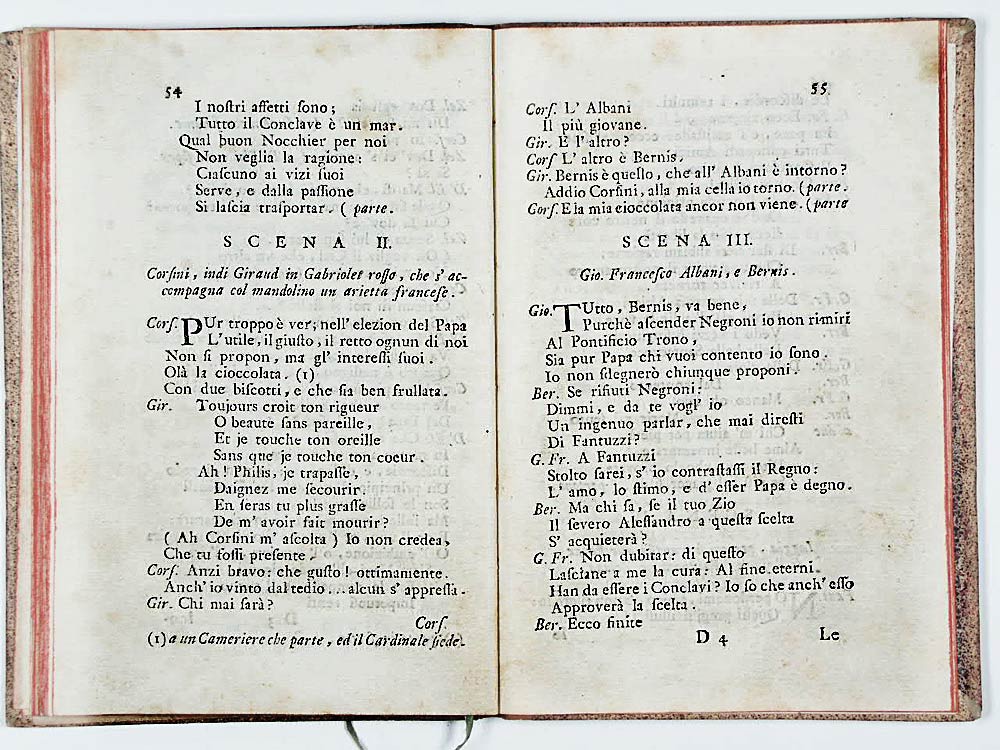 54
I noſtri affetti ſono;
Tutto il Conclave è un mar.
Qual buon Nocchier per noi
Non veglia la ragione:
Ciaſcuno ai vizi ſuoi
Serve, e dalla paſſione
Si laſcia traſportar. ( parte.
SCENA II.
Corſini, indi Giraud in Gabriolet roſſo, che s' ac-
compagna col mandolino un arietta franceſe.
Corſ. PUr troppo è ver; nell' elezion del Papa
L' utile, il giuſto, il retto ognun di noi
Non ſi propon, ma gl' intereſſi ſuoi.
Olà la cioccolata. (1)
Con due biſcotti, e che ſia ben frullata.
Gir. Toujours croit ton rigueur
O beaute ſans pareille,
Et je touche ton oreille
Sans que je touche ton coeur.
Ah! Philis, je trapaſſe,
Daignez me ſecourir.
En ſeras tu plus graſſe
De m' avoir fait mourir?
( Ah Corſini m' aſcolta ) Io non credea,
Che tu foſſi preſente.
Corſ. Anzi bravo: che guſto! ottimamente.
Anch' io vinto dal tedio ... alcun s' appreſſa.
Gir. Chi mai ſarà?
Corſ.
(1) a un Cameriere che parte, ed il Cardinale ſiede.
55
Corſ. L' Albani
Il più giovane.
Gir. E l' altro?
Corſ L' altro è Bernis.
Gir. Bernis è queſto, che all' Albani è intorno?
Addio Corſini, alla mia cella io torno. (parte.
Corſ. E la mia cioccolata ancor non viene. (parte
SCENA III.
Gio. Franceſco Albani, e Bernis.
Gio. TUtto, Bernis, va bene,
Purchè aſcender Negroni io non rimiri
Al Pontificio Trono,
Sia pur Papa chi vuoi contento io ſono.
Io non ſdegnerò chiunque proponi.
Ber. Se rifiuti Negroni:
Dimmi, e da te vogl' io
Un ingenuo parlar, che mai direſti
Di Fantuzzi?
G. Fr. A Fantuzzi
Stolto ſarei, s' io contraſtaſſi il Regno:
L' amo, lo ſtimo, e d' eſſer Papa è degno.
Ber. Ma chi ſa, ſe il tuo Zio
Il ſevero Aleſſandro a queſta ſcelta
S' acquieterà?
G. Fr. Non dubitar: di queſto
Laſciane a me la cura: Al fine eterni
Han da eſſere i Conclavi? Io ſo che anch' eſſo
Approverà la ſcelta.
Ber. Ecco finite
D 4 Le